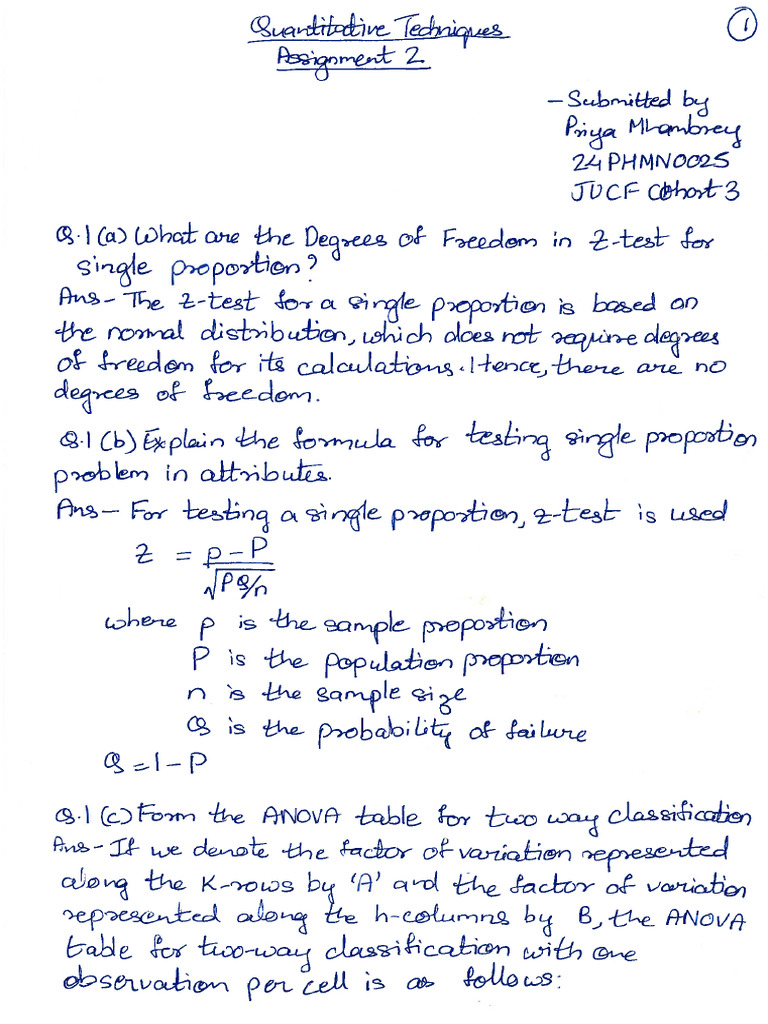 Quantitative Techniques
1
Assignment 2
- Submitted by
Priya Mhambrey
24PHMN0025
JUCF Cohort 3
Q.1 (a) What are the Degrees of Freedom in Z-test for
single proportion?
Ans - The z-test for a single proportion is based on
the normal distribution, which does not require degrees
of freedom for its calculations. Hence, there are no
degrees of freedom.
Q.1 (b) Explain the formula for testing single proportion
problem in attributes.
Ans - For testing a single proportion, z-test is used
Z = p - P
√PQ/n
where p is the sample proportion
P is the population proportion
n is the sample size
Q is the probability of failure
Q = 1 - P
Q.1 (c) Form the ANOVA table for two way classification
Ans - If we denote the factor of variation represented
along the K-rows by 'A' and the factor of variation
represented along the h-columns by B, the ANOVA
table for two-way classification with one
observation per cell is as follows: